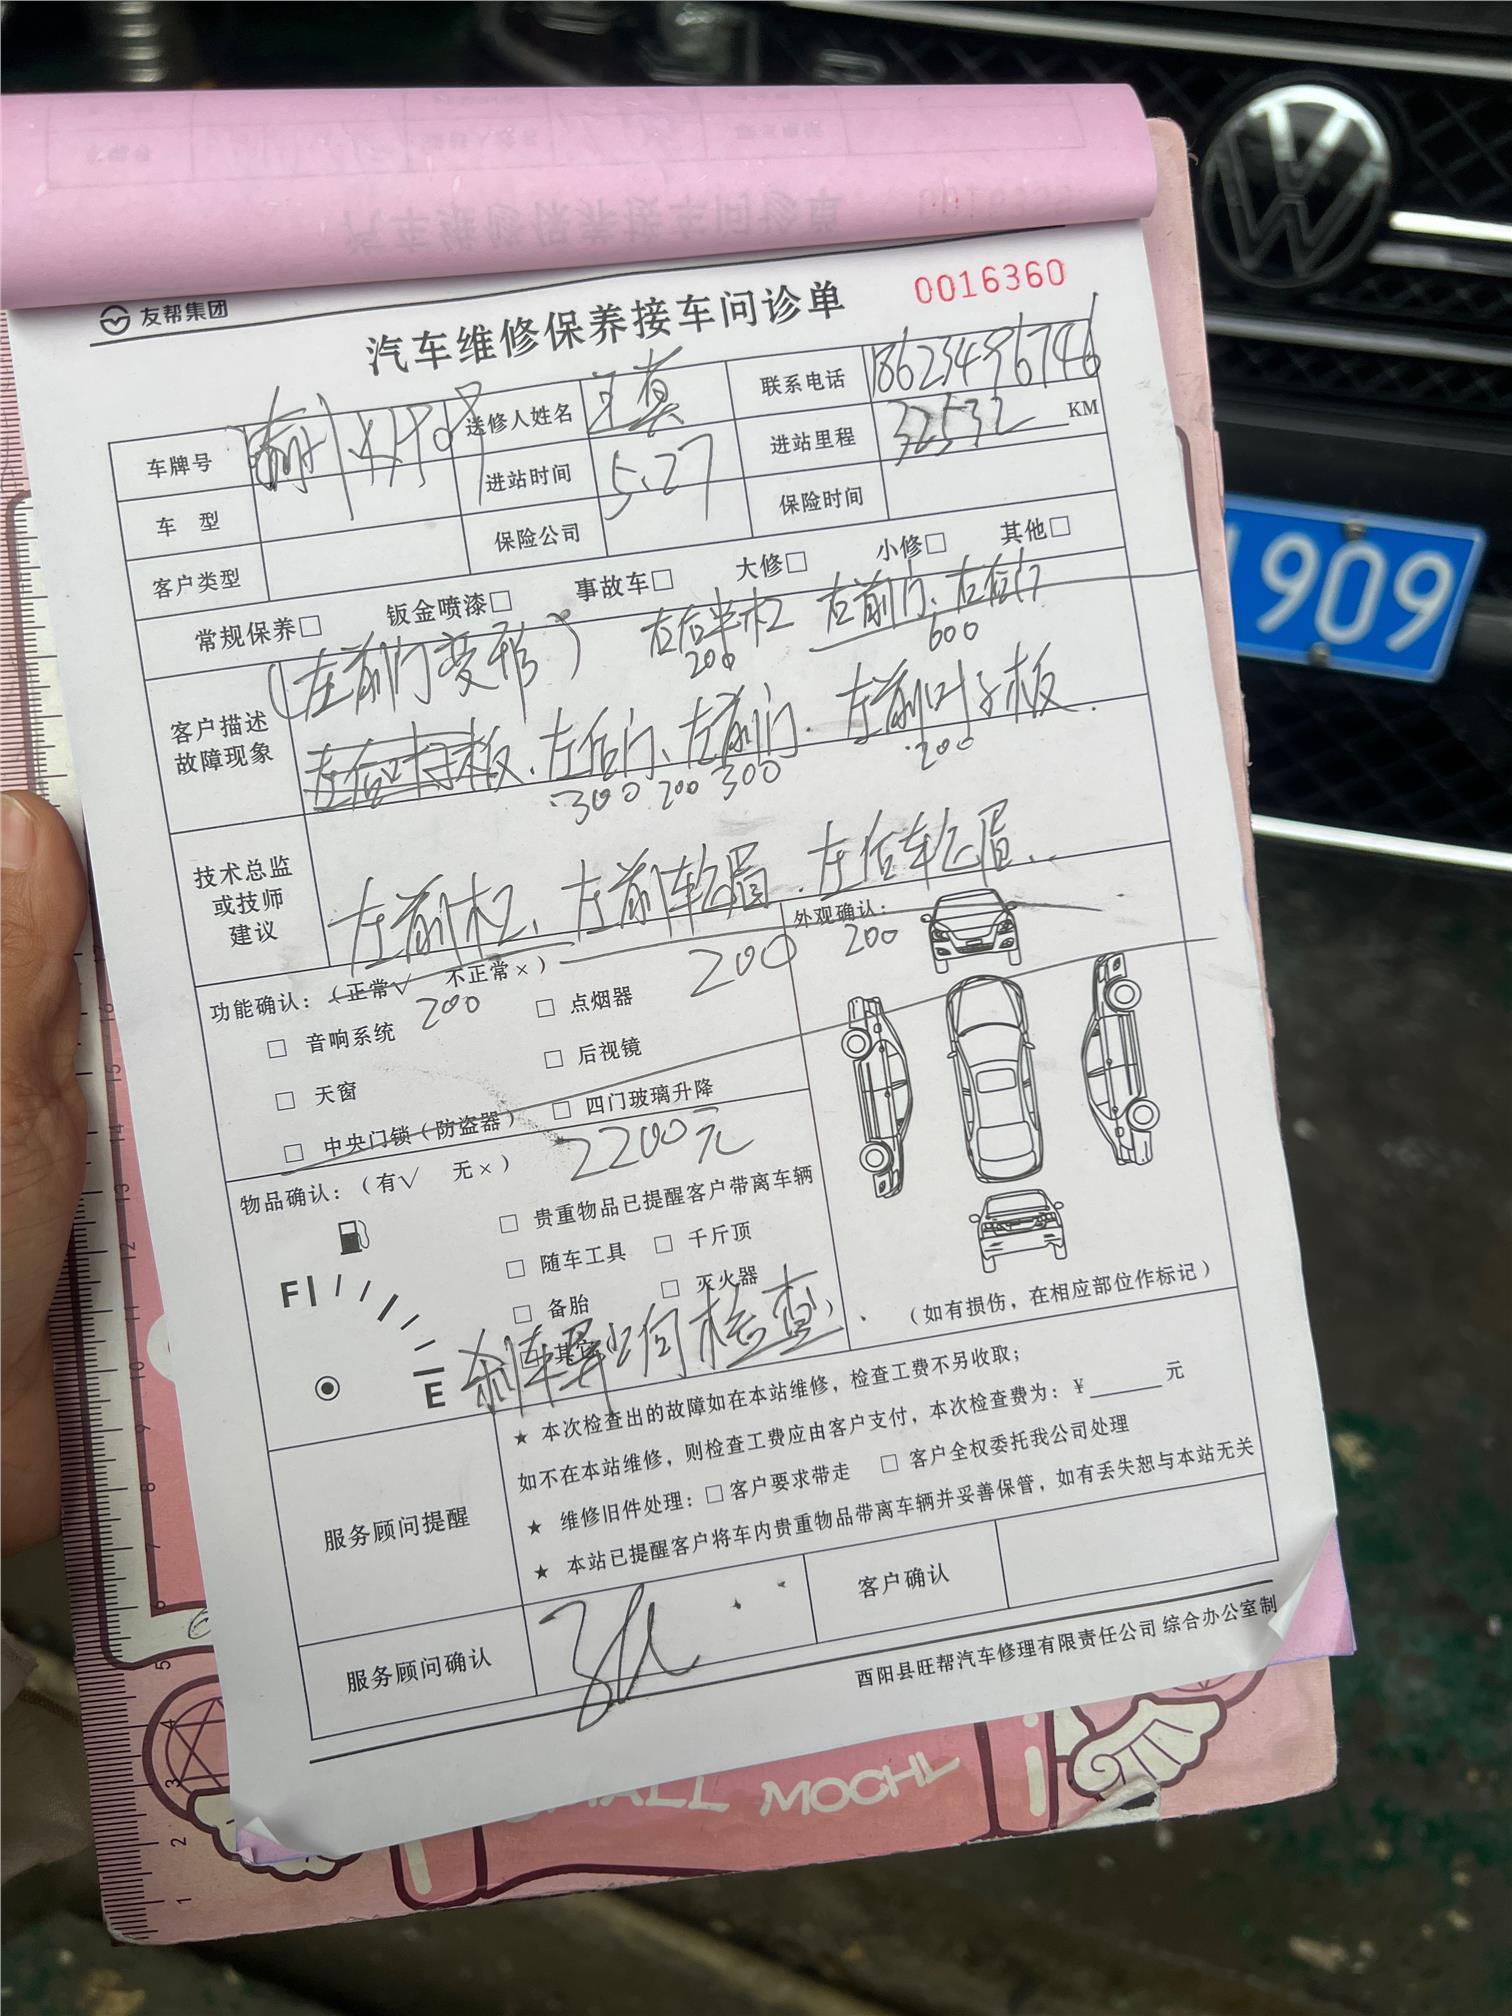 友帮集团
汽车维修保养接车问诊单
0016360
车牌号
送修人姓名
联系电话 18623496746
车型
进站时间 5.27
进站里程 32532 KM
客户类型
保险公司
保险时间
常规保养□ 钣金喷漆□ 事故车□ 大修□ 小修□ 其他□
客户描述故障现象
(左前门变形) 左后半杠 左前门、左后门
200 600
左后叶子板、左后门、左前门、左前叶子板.
300 200 300 200
技术总监或技师建议
左前杠、左前轮眉、左后轮眉.
200 200 200
功能确认:(正常√ 不正常×)
外观确认:
□ 音响系统 □ 点烟器
□ 天窗 □ 后视镜
□ 中央门锁(防盗器) □ 四门玻璃升降
2200元
物品确认:(有√ 无×)
□ 贵重物品已提醒客户带离车辆
□ 随车工具 □ 千斤顶
□ 备胎 □ 灭火器
□ 其它
F
E
刹车异响检查
(如有损伤,在相应部位作标记)
服务顾问提醒
★ 本次检查出的故障如在本站维修,检查工费不另收取;
如不在本站维修,则检查工费应由客户支付,本次检查费为:¥______元
★ 维修旧件处理:□ 客户要求带走 □ 客户全权委托我公司处理
★ 本站已提醒客户将车内贵重物品带离车辆并妥善保管,如有丢失恕与本站无关
服务顾问确认
客户确认
酉阳县旺帮汽车修理有限责任公司 综合办公室制
909
MOCHI